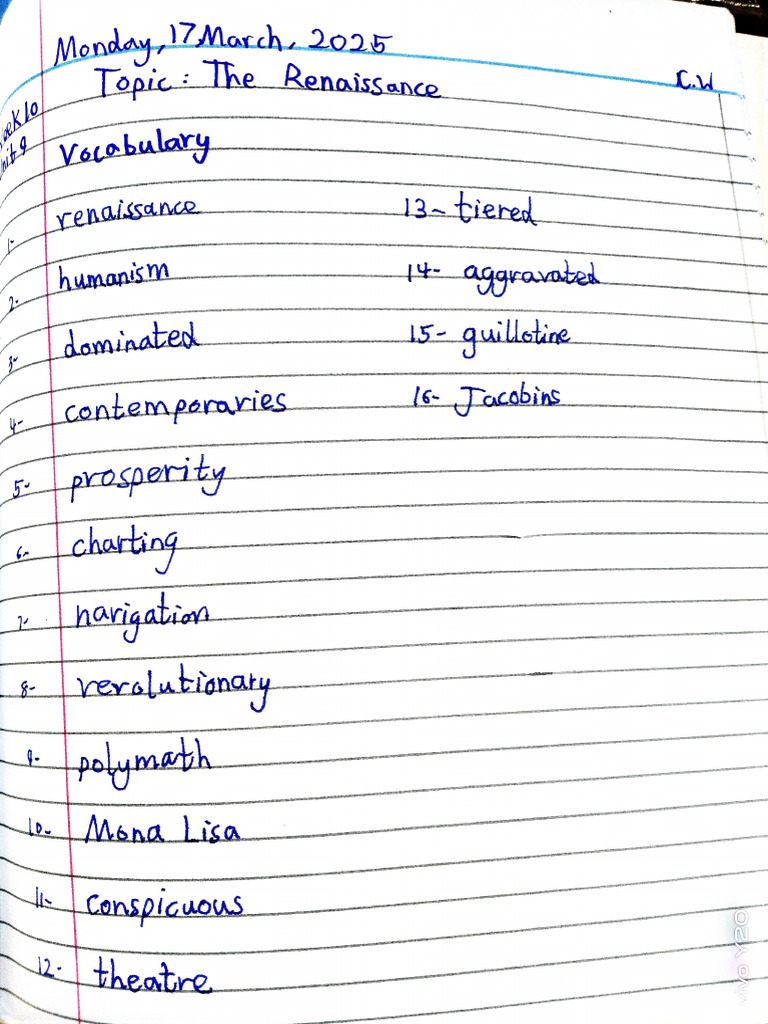 Monday, 17 March, 2025
Topic: The Renaissance C.W
Week 10
Unit 9
Vocabulary
1- renaissance
2- humanism
3- dominated
4- contemporaries
5- prosperity
6- charting
7- navigation
8- revolutionary
9- polymath
10- Mona Lisa
11- conspicuous
12- theatre
13- tiered
14- aggravated
15- guillotine
16- Jacobins
vivo Y20